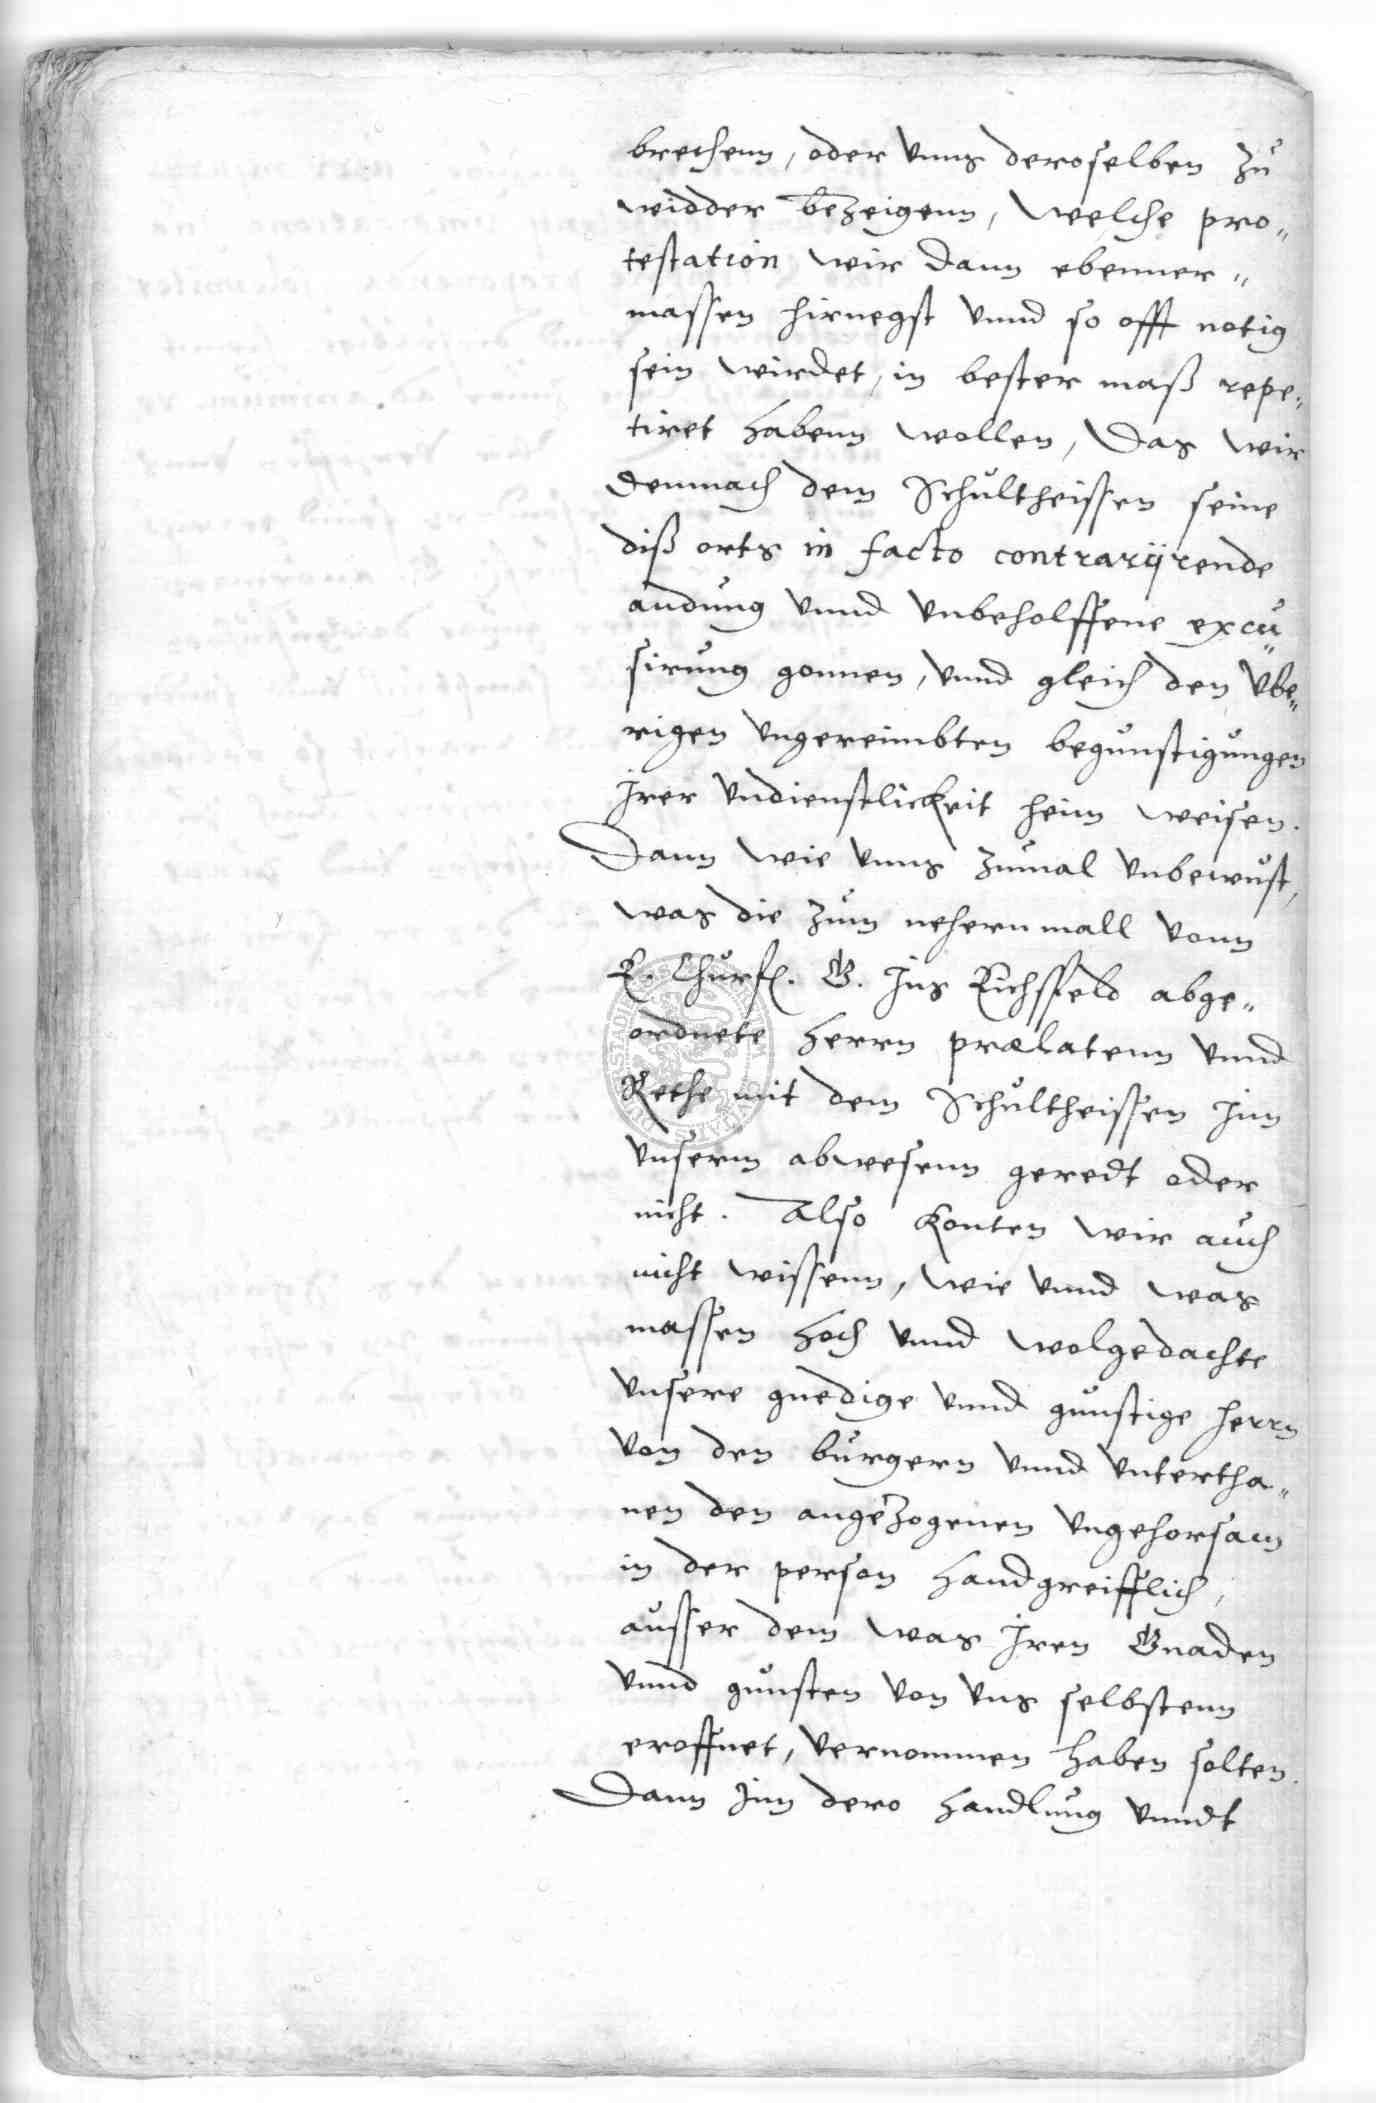 brechenn, oder vnns deroselben zu
widder bezeigenn, welche pro„
testation wir dann ebenner„
massen hirnegst vnnd so offt notig
sein wirdet, in bester maß repe„
tiret habenn wollen, Das wir
demnach dem Schultheissen seine
diß orts in facto contrarijrende
andung vnnd vnbeholffene excu„
sirung gonnen, vnnd gleich den vbe„
rigen vngereimbten begunstigungen
Jrer vndienstlickeit heim weisen.
Dann wie vnns zumal vnbewust,
was die zum nehernmall vonn
E. Churf. G. Jns Eichsfeld abge„
ordnete Herrn prælatenn vnnd
Rethe mit dem Schultheissen Jnn
vnserm abwesenn geredt oder
nicht. Also konten wir auch
nicht wissenn, wie vnnd was
massen Hoch vnnd wolgedachte
vnsere gnedige vnnd gunstige herrn
von den burgern vnnd vntertha„
nen den angezogenen vngehorsam
in der person handgreifflich,
ausser dem was Jren Gnaden
vnnd gunsten von vns selbstenn
eroffnet, vernommen haben solten.
Dann Jnn dero handlung vnndt